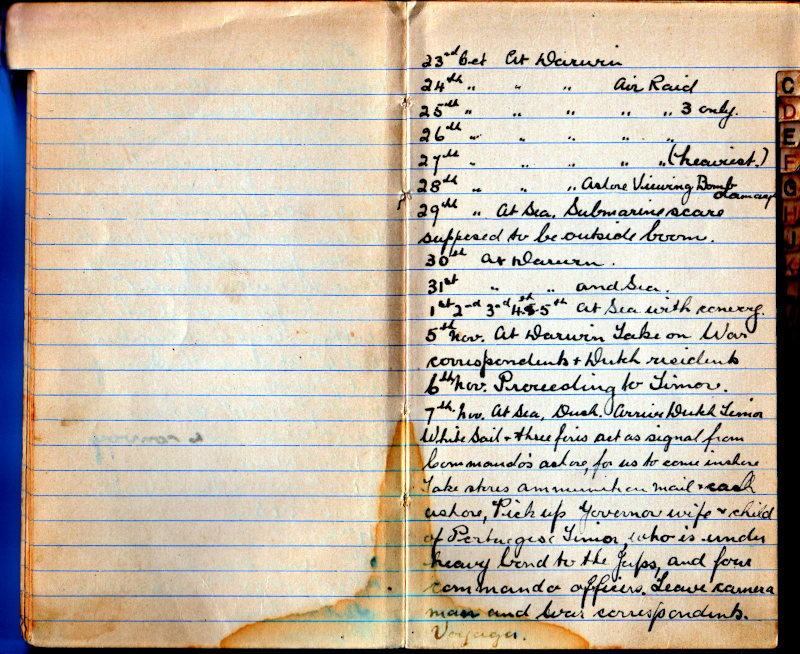 23rd Oct At Darwin
24th " " " Air Raid
25th " " " " " 3 only.
26th " " " " "
27th " " " " " (heaviest.)
28th " " " Ashore Viewing Bomb damage
29th " At Sea, Submarine scare
supposed to be outside boom.
30st At Darwin.
31st " " and Sea.
1st 2nd 3rd 4th 5th At Sea with convoy.
5th Nov. At Darwin Take on War
correspondents + Dutch residents
6th Nov. Proceeding to Timor.
7th Nov. At Sea, Dusk. Arrive Dutch Timor
White Sail + three fires set as signal from
Commando's ashore, for us to come inshore
Take stores ammunition mail + cash
ashore, Pick up Governor wife + child
of Portugese Timor who is under
heavy bond to the Japs, and four
commando officers. Leave camera
man and War correspondents.
Voyager.
C
D
E
F
G
H